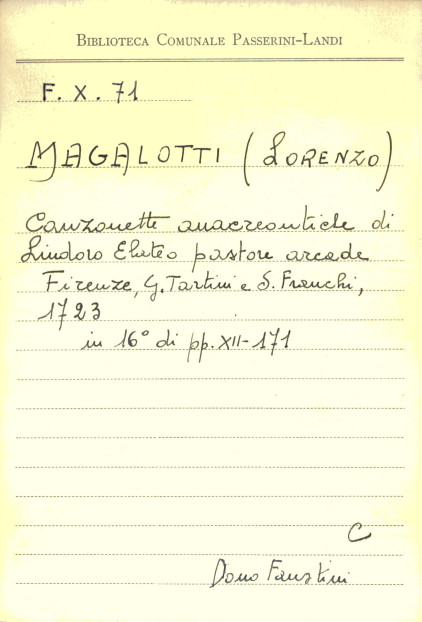 BIBLIOTECA COMUNALE PASSERINI-LANDI
F. X. 71
MAGALOTTI (LORENZO)
Canzonette anacreontiche di
Lindoro Elateo pastore arcade
Firenze, G. Tartini e S. Franchi,
1723
in 16° di pp. XII-171
C
Dono Faustini